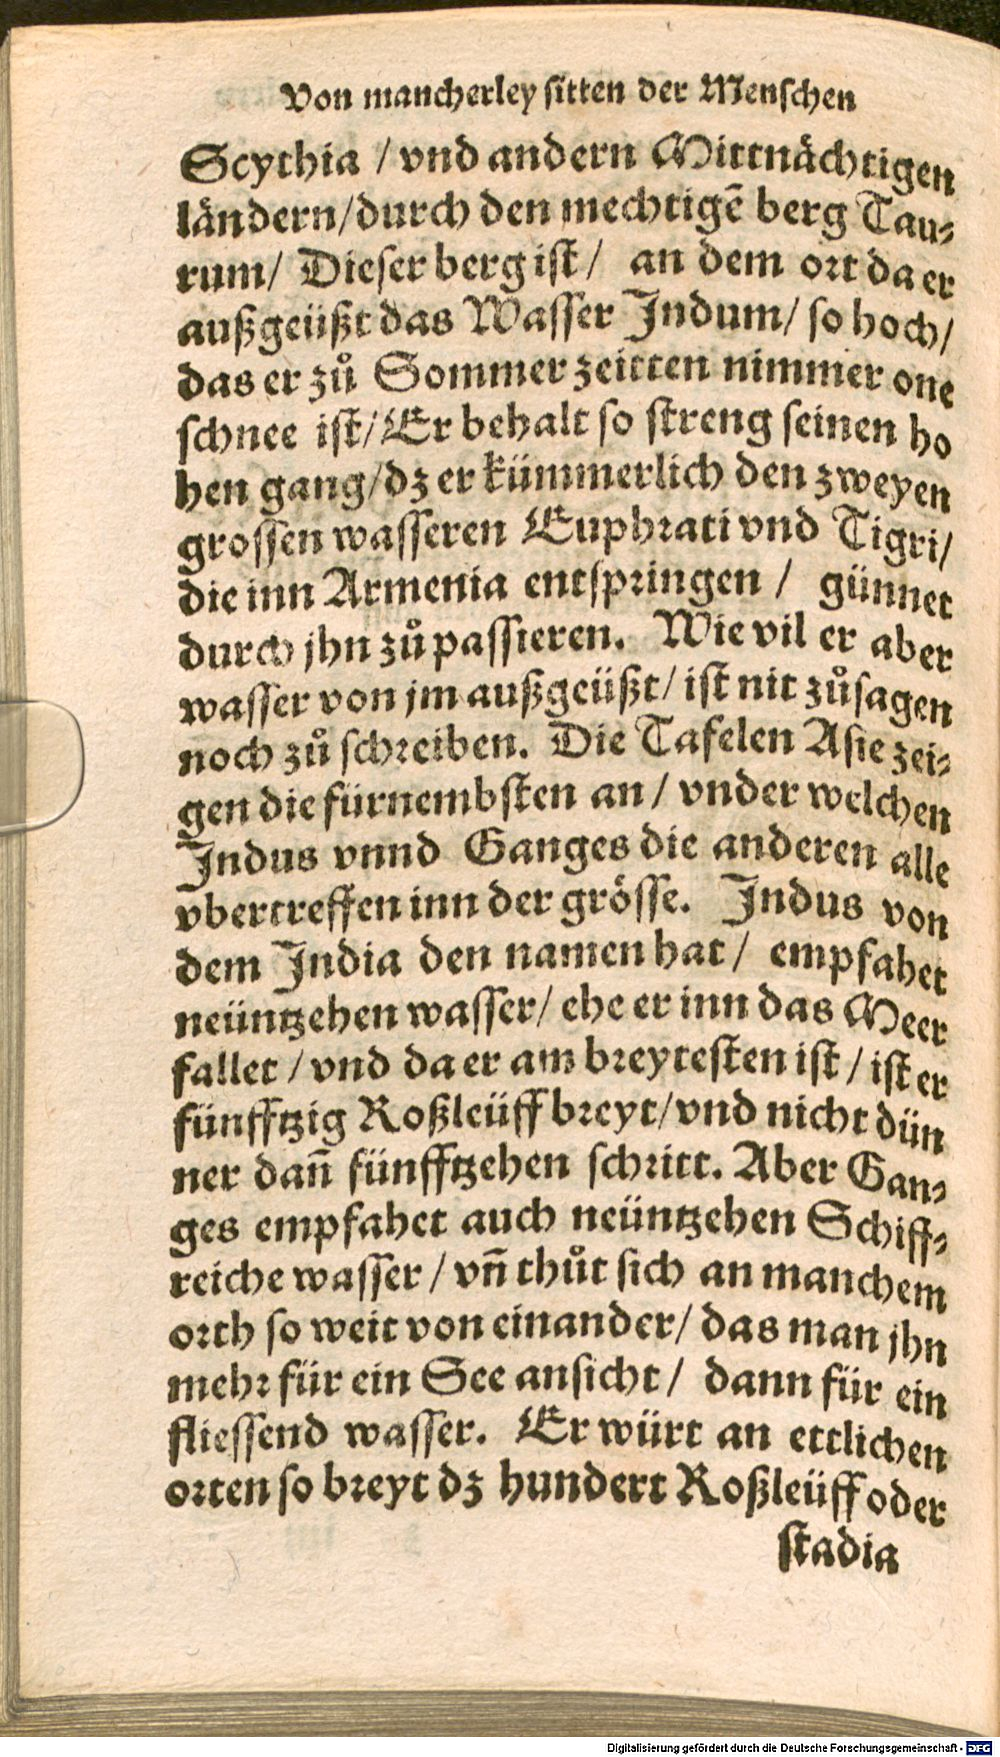 Von mancherley ſitten der Menſchen
Scythia / vnd andern Mittnächtigen
ländern/durch den mechtigē berg Tau⸗
rum/ Dieſer berg iſt / an dem ort da er
außgeüßt das Waſſer Indum/ ſo hoch/
das er zů Sommer zeitten nimmer one
ſchnee iſt/Er behalt ſo ſtreng ſeinen ho
hen gang/dz er kümmerlich den zweyen
groſſen waſſeren Euphrati vnd Tigri/
die inn Armenia entſpringen / günnet
durch jhn zů paſſieren. Wie vil er aber
waſſer von jm außgeüßt/ iſt nit zůſagen
noch zů ſchreiben. Die Tafelen Aſie zei⸗
gen die fürnembſten an / vnder welchen
Indus vnnd Ganges die anderen alle
vbertreffen inn der gröſſe. Indus von
dem India den namen hat / empfahet
neüntzehen waſſer/ ehe er inn das Meer
fallet / vnd da er am breyteſten iſt / iſt er
fünfftzig Roßleüff breyt/vnd nicht dün
ner dañ fünfftzehen ſchritt. Aber Gan⸗
ges empfahet auch neüntzehen Schiff⸗
reiche waſſer / vñ thůt ſich an manchem
orth ſo weit von einander/ das man jhn
mehr für ein See anſicht / dann für ein
flieſſend waſſer. Er würt an ettlichen
orten ſo breyt dz hundert Roßleüff oder
ſtadia
Digitalisierung gefördert durch die Deutsche Forschungsgemeinschaft - DFG